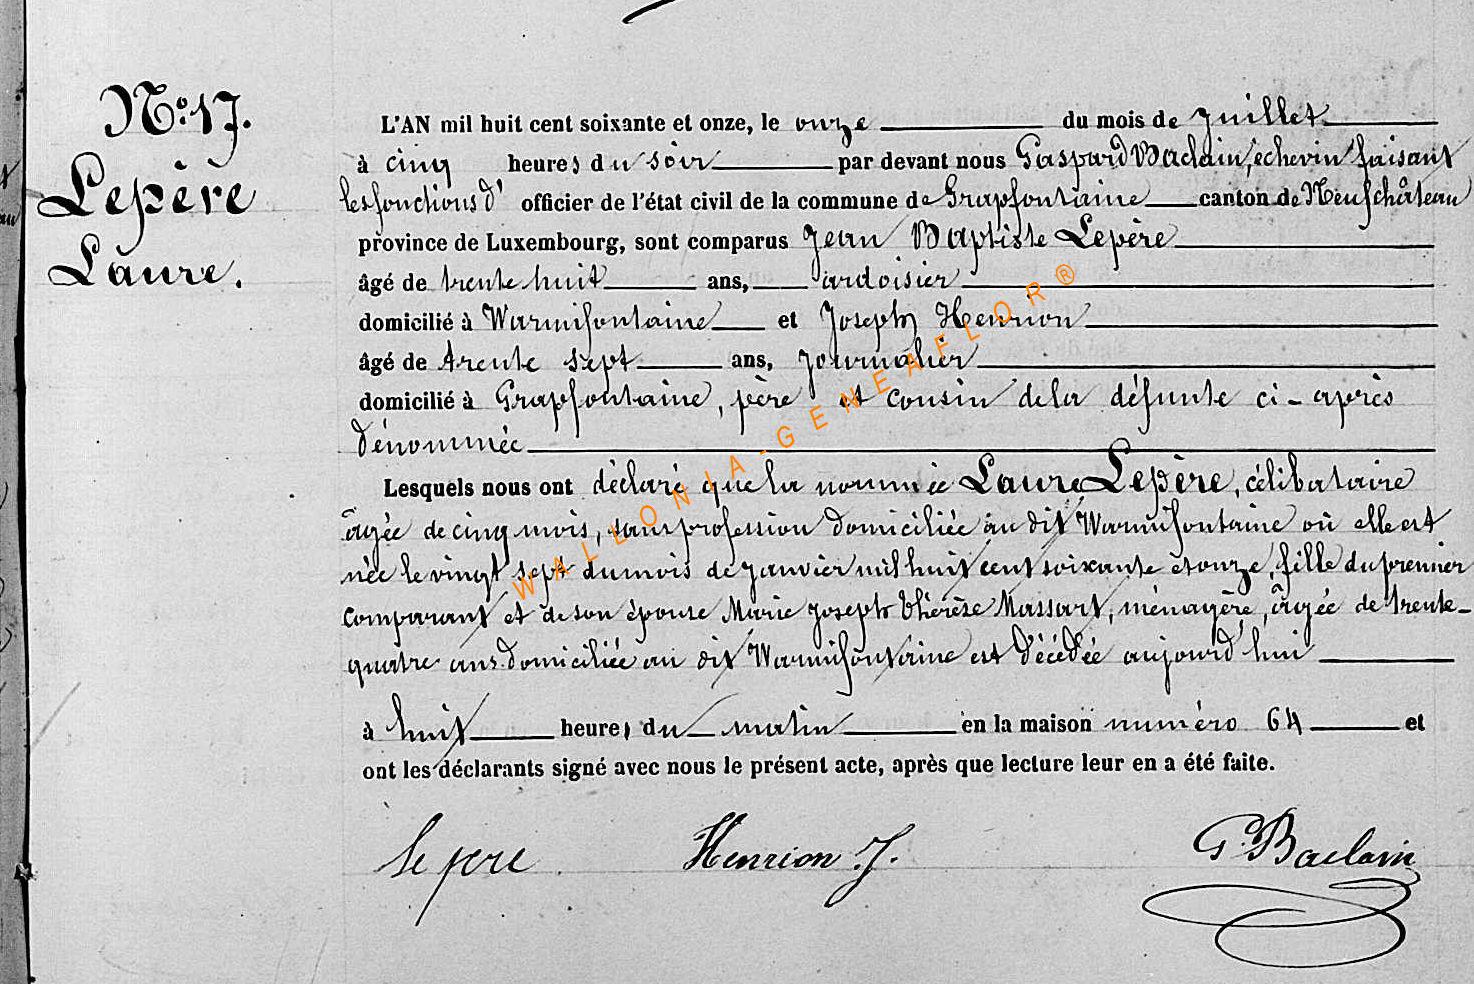 N° 17.
Lepère
Laure.
L'AN mil huit cent soixante et onze, le onze du mois de Juillet
à cinq heures du soir par devant nous Gaspard Baclain, echevin faisant
les fonctions d' officier de l'état civil de la commune de Grapfontaine canton de Neufchâteau
province de Luxembourg, sont comparus Jean Baptiste Lepère
âgé de trente huit ans, ardoisier
domicilié à Warmifontaine et Joseph Henrion
âgé de trente sept ans, journalier
domicilié à Grapfontaine, père et cousin de la défunte ci-après
dénommée
Lesquels nous ont déclaré que la nommée Laure Lepère, célibataire
âgée de cinq mois, sans profession domiciliée au dit Warmifontaine où elle est
née le vingt sept du mois de janvier mil huit cent soixante et onze, fille du premier
comparant et de son épouse Marie Joseph Thérèse Massart, ménagère, âgée de trente-
quatre ans domiciliée au dit Warmifontaine est décédée aujourd'hui
à huit heures du matin en la maison numéro 64 et
ont les déclarants signé avec nous le présent acte, après que lecture leur en a été faite.
Le pere Henrion J. G. Baclain
WALLONIA-GENEAFLOR®